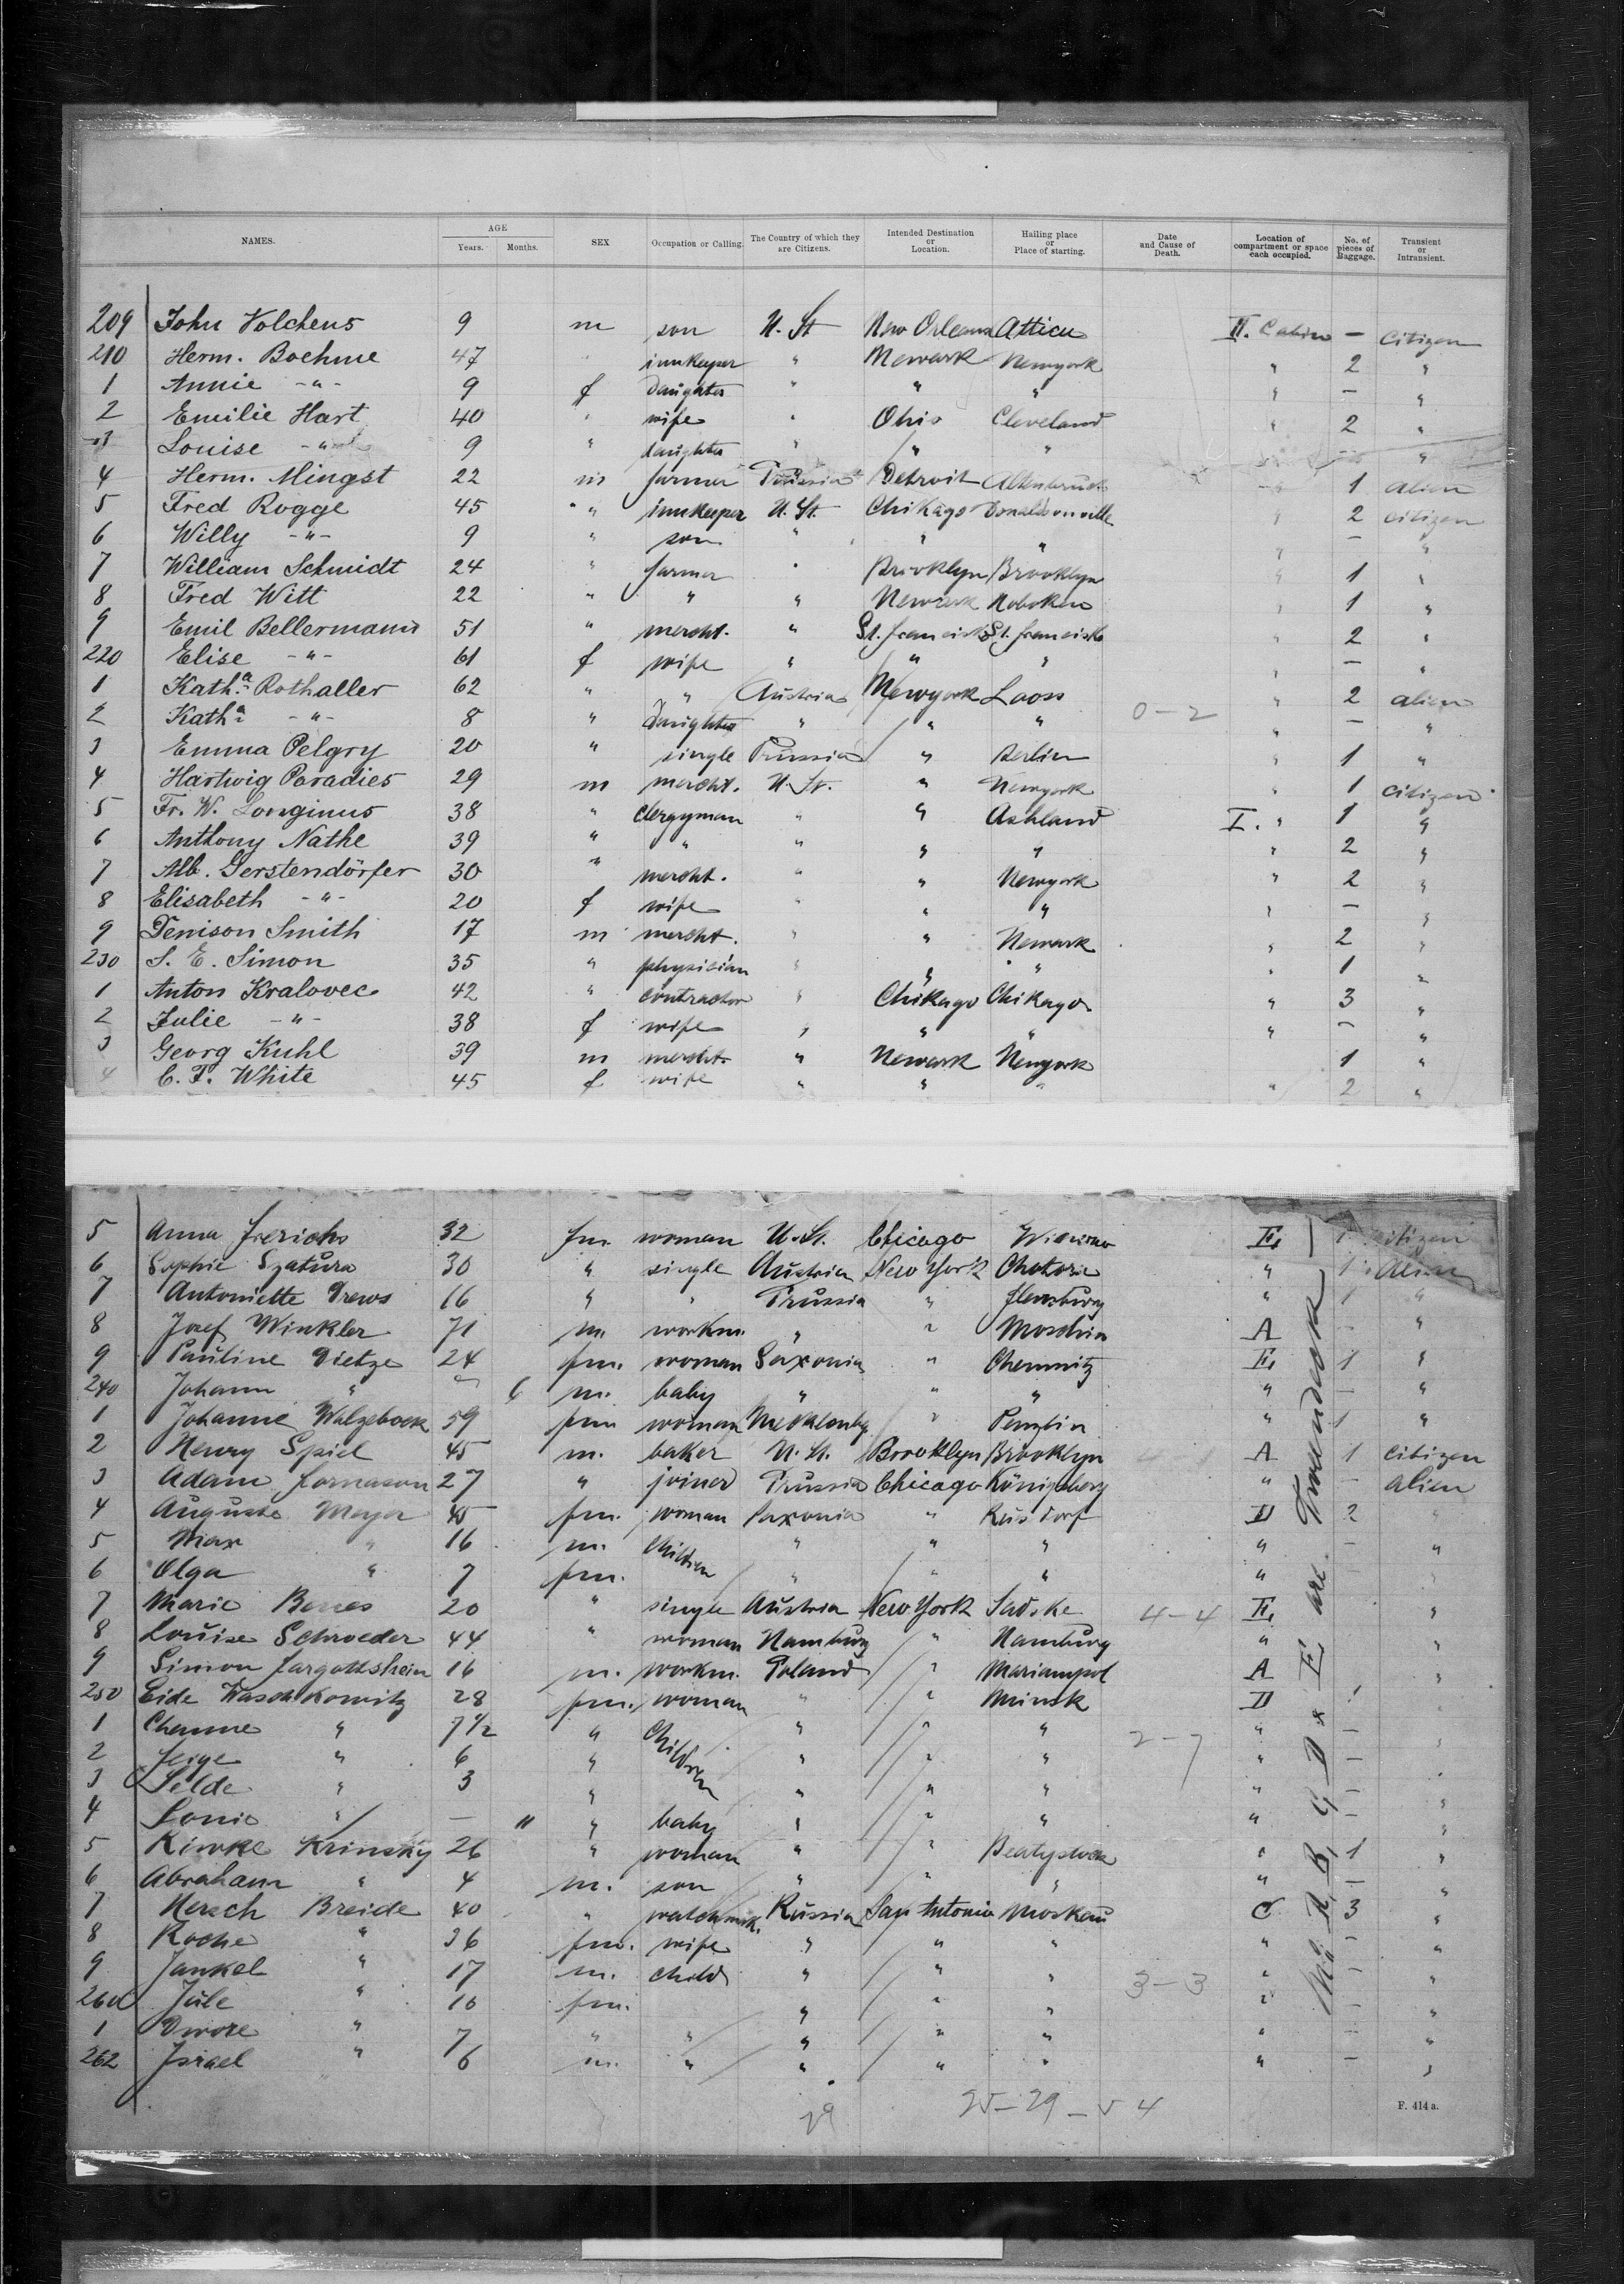 NAMES. AGE Years. Months. SEX Occupation or Calling. The Country of which they are Citizens. Intended Destination or Location. Hailing place or Place of starting. Date and Cause of Death. Location of compartment or space each occupied. No. of pieces of Baggage. Transient or Intransient.
209 John Volchens 9 m son U. St New Orleans Attica II. Cabin — citizen
210 Herm. Boehme 47 " innkeeper " Newark Newyork " 2 "
1 Annie -"- 9 f daughter " " " " — "
2 Emilie Hart 40 " wife " Ohio Cleveland " 2 "
3 Louise -"- 9 " daughter " " " "
4 Herm. Mingst 22 m farmer Prussia Detroit Altenbruch " 1 alien
5 Fred Rogge 45 " innkeeper U. St. Chikago Donaldsonville " 2 citizen
6 Willy -"- 9 " son " " " " — "
7 William Schmidt 24 " farmer " Brooklyn Brooklyn " 1 "
8 Fred Witt 22 " " " Newark Hoboken " 1 "
9 Emil Bellermann 51 " mercht. " St. francisko St. francisko " 2 "
220 Elise -"- 61 f wife " " " " — "
1 Kath.a Rothaller 62 " " Austria Newyork Laoss " 2 alien
2 Kath.a -"- 8 " daughter " " " 0-2 " — "
3 Emma Pelgry 20 " single Prussia " Berlin " 1 "
4 Hartwig Paradies 29 m mercht. U. St. " Newyork " 1 citizen
5 Fr. W. Longinus 38 " clergyman " " Ashland I. " 1 "
6 Anthony Nathe 39 " " " " " " 2 "
7 Alb. Gerstendörfer 30 " mercht. " " Newyork " 2 "
8 Elisabeth -"- 20 f wife " " " " — "
9 Denison Smith 17 m mercht. " " Newark " 2 "
230 S. E. Simon 35 " physician " " " " 1 "
1 Anton Kralovec 42 " contractor " Chikago Chikago " 3 "
2 Julie -"- 38 f wife " " " " — "
3 Georg Kuhl 39 m mercht. " Newark Newyork 1 "
4 C. F. White 45 f wife " " " " 2 "
5 Anna Frerichs 32 fm. woman U. St. Chicago E, 1 citizen
6 Sophie Szatura 30 " single Austria New York Chotorie " 1 Alien
7 Antoniette Drews 16 " " Prussia " Flensburg " 1 "
8 Josef Winkler 71 m. workm. " " Moschin A - "
9 Pauline Dietze 24 fm. woman Saxonia " Chemnitz E, 1 "
240 Johann " 6 m. baby " " " " — "
1 Johanne Walzeboek 59 fm woman Mecklenbg " Penzlin " 1 "
2 Henry Spiel 45 m. baker U. St. Brooklyn Brooklyn A 1 citizen
3 Adam Jornason 27 " joiner Prussia Chicago Königsberg " — alien
4 Auguste Meyer 45 fm. woman Saxonia " Rüsdorf D 2 "
5 Max " 16 m. Children " " " " — "
6 Olga " 7 fm. " " " " "
7 Marie Benes 20 " single Austria New York Sadske 4-4 E, "
8 Louise Schroeder 44 " woman Hamburg " Hamburg " "
9 Simon Jargottshein 16 m. workm. Poland " Mariampol A "
250 Eide Waschkowitz 28 fm. woman " " Minsk D 1 "
1 Channe " 7 1/2 " Children " " " 2-7 " — "
2 Feige " 6 " " " " " — "
3 Selde " 3 " " " " " — "
4 Sonie " — 11 " baby " " " " — "
5 Riwke Krinsky 26 " woman " " " 1 "
6 Abraham " 4 m. son " " " " — "
7 Hersch Breide 40 " watchmk. Russia San Antonio Moskau C 3 "
8 Roche " 36 fm. wife " " " " - "
9 Jankel " 17 m. child " " " 3-3 " — "
260 Jule " 10 fm. " " " " — "
1 Dwore " 7 " " " " " " — "
262 Israel " 6 m. " " " " " — "
29 25-29-54
F. 414 a.